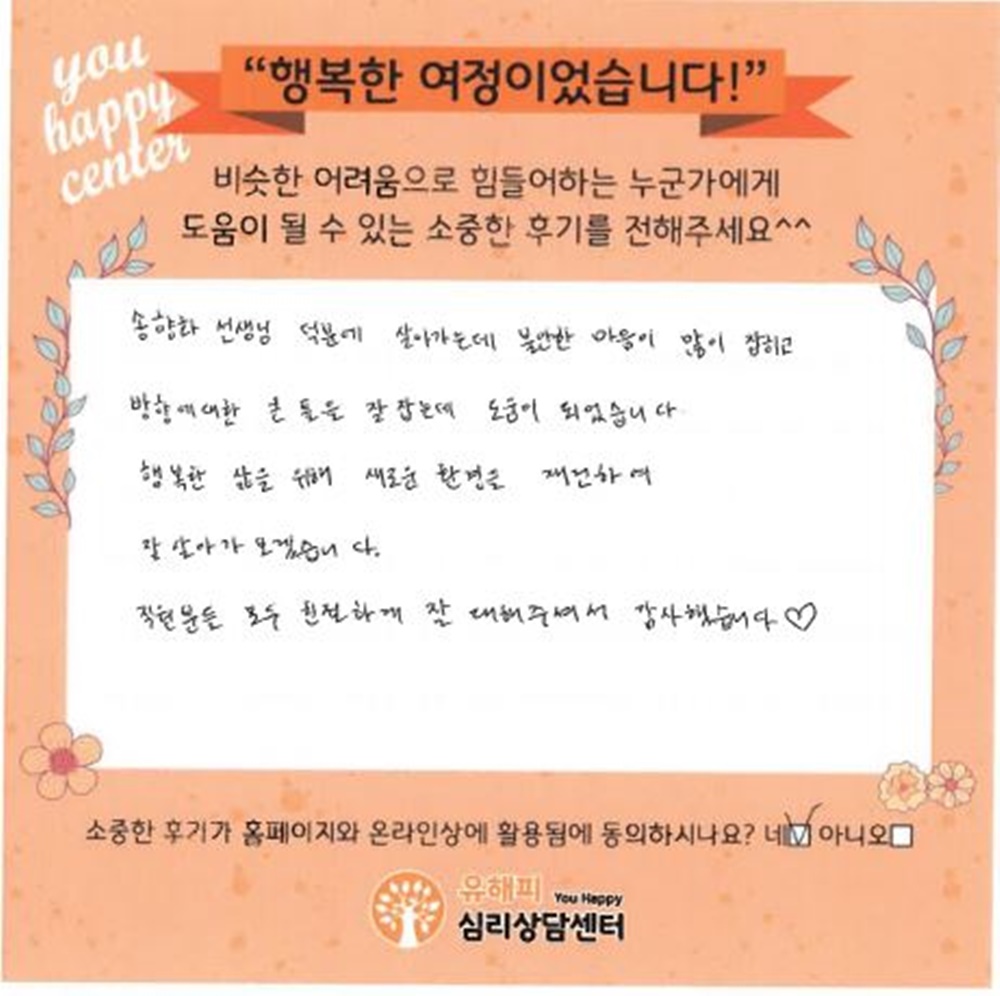 you
happy
center
“행복한 여정이었습니다!”
비슷한 어려움으로 힘들어하는 누군가에게
도움이 될 수 있는 소중한 후기를 전해주세요^^
송향화 선생님 덕분에 살아가는데 불안한 마음이 많이 잡히고
방향에대한 큰 틀을 잘 잡는데 도움이 되었습니다
행복한 삶을 위해 새로운 환경을 재건하여
잘 살아가 보겠습니다.
직원분들 모두 친절하게 잘 대해주셔서 감사했습니다♡
소중한 후기가 홈페이지와 온라인상에 활용됨에 동의하시나요? 네☑ 아니오☐
유해피 You Happy
심리상담센터